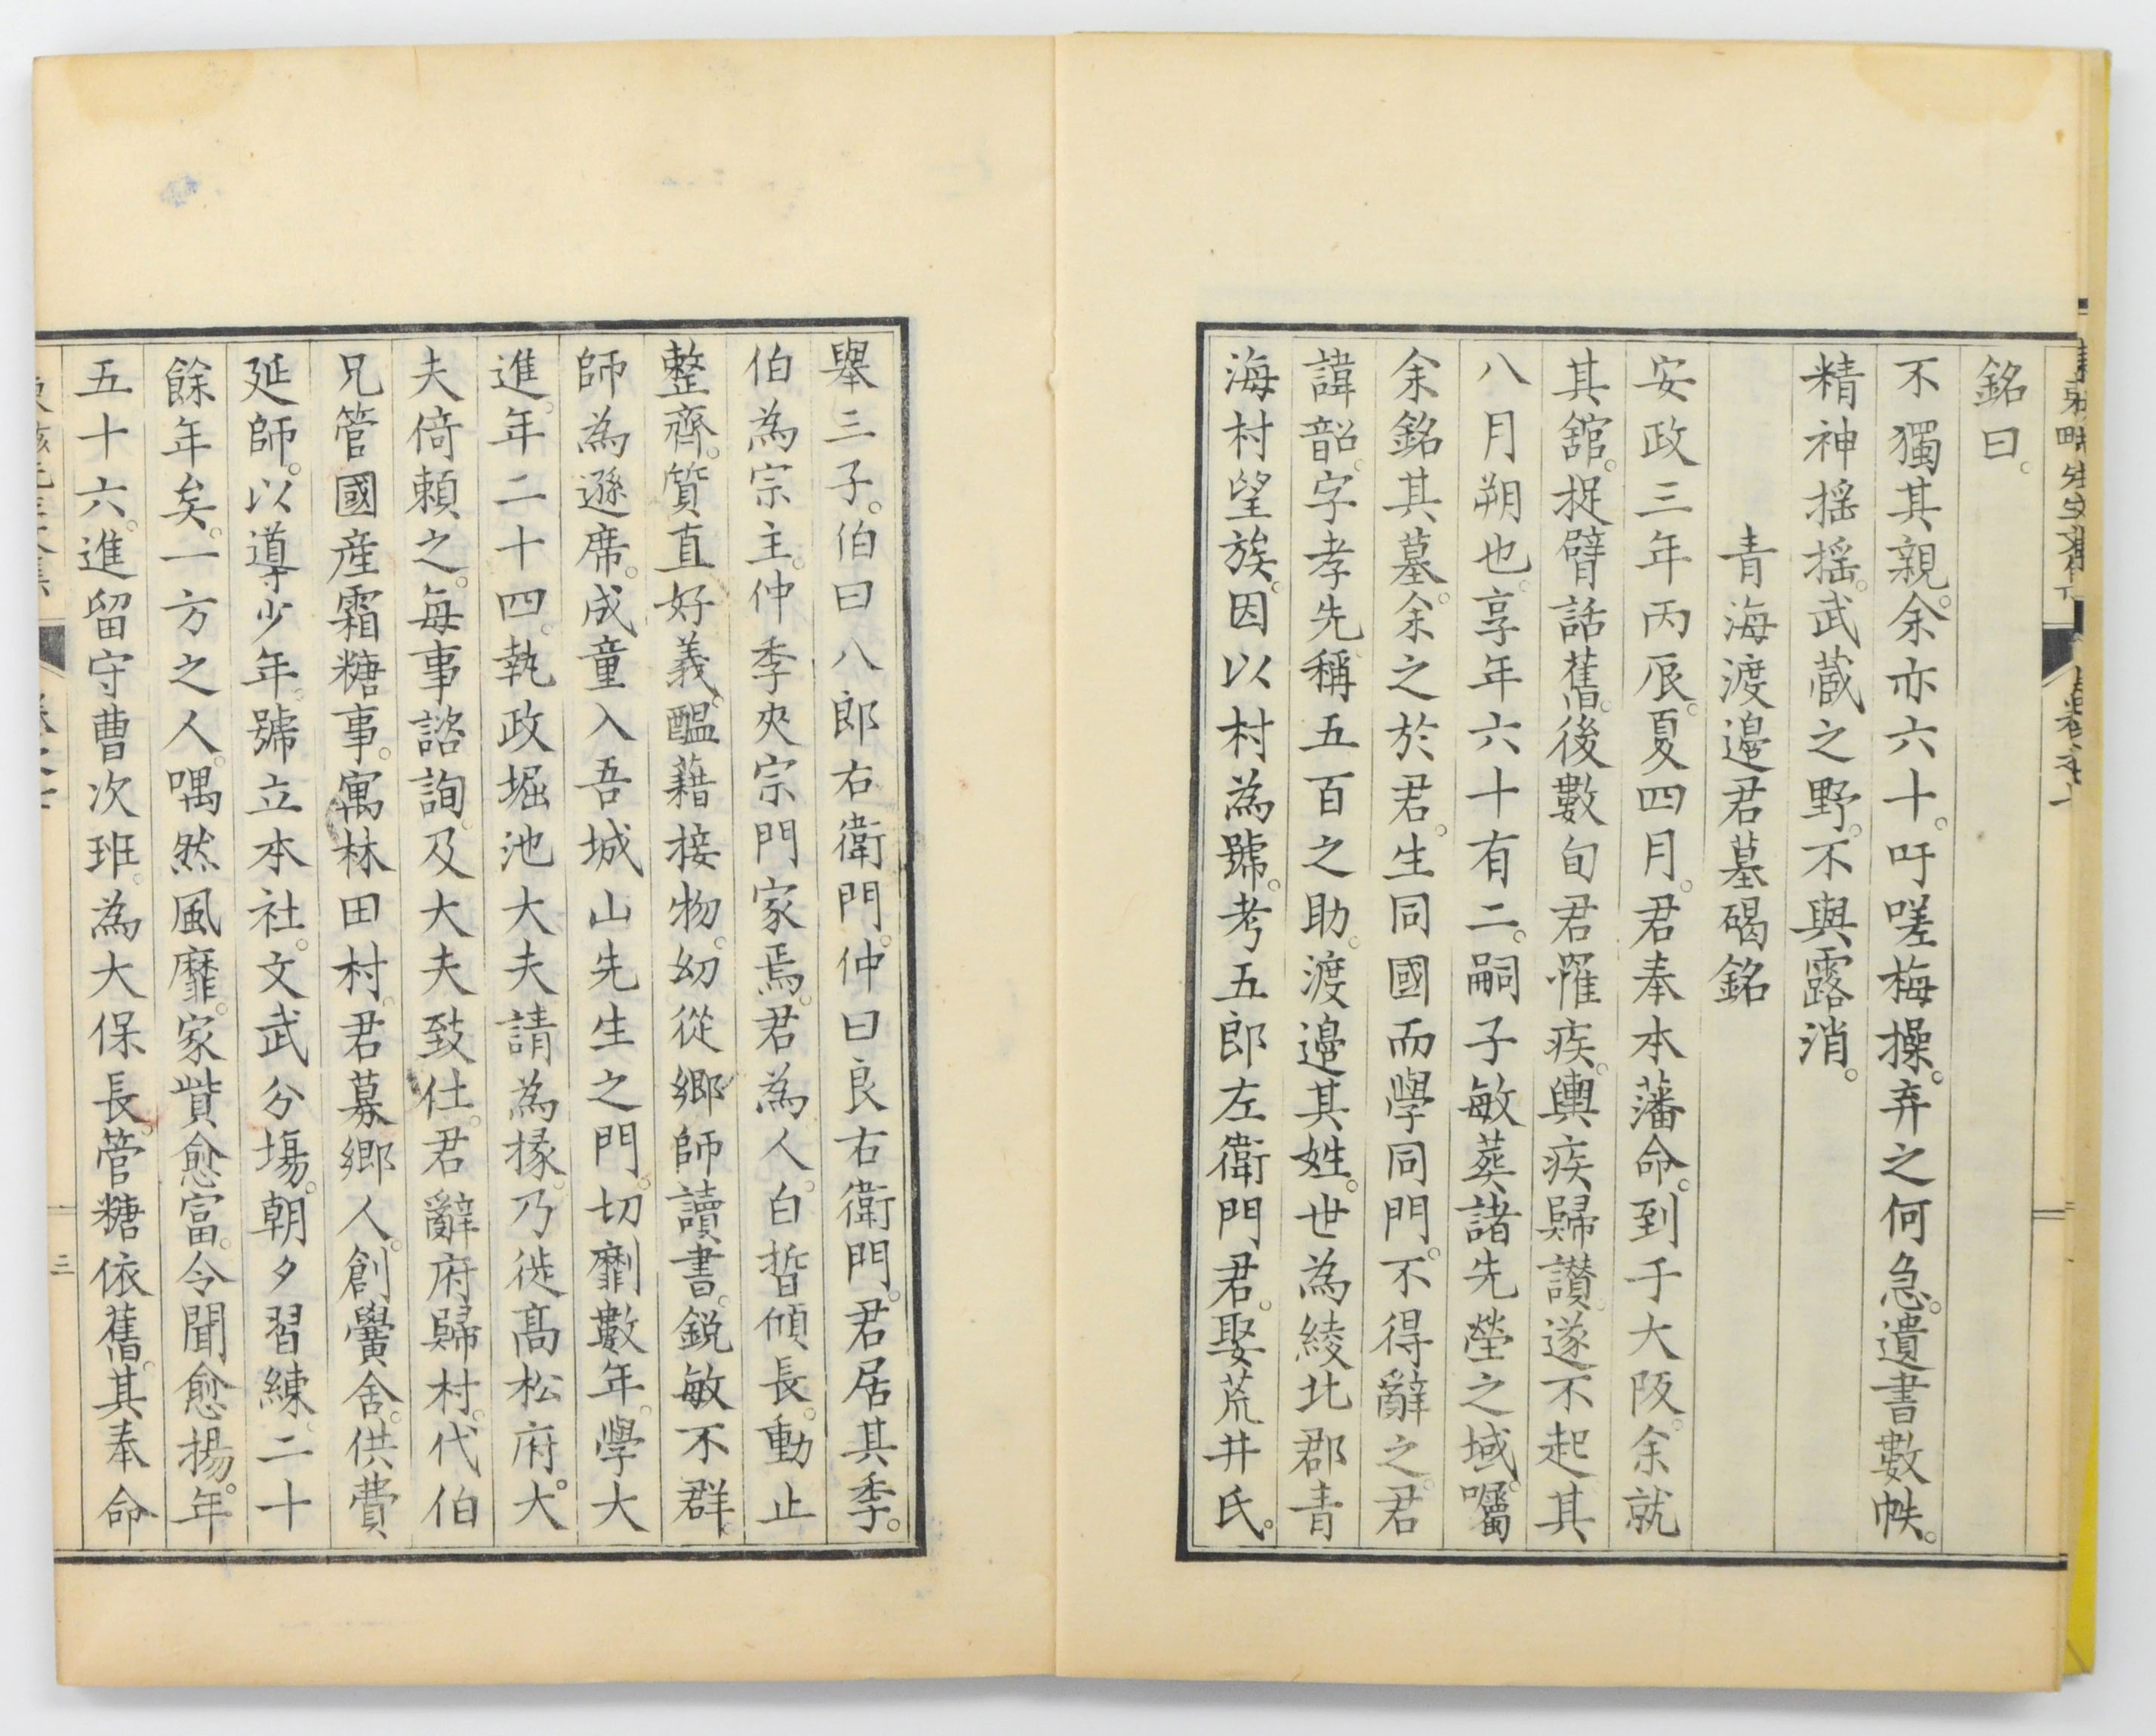 銘曰。
不獨其親。余亦六十。吁嗟梅操。弃之何急。遺書數帙。
精神揺揺。武蔵之野。不與露消。
青海渡邉君墓碣銘
安政三年丙辰。夏四月。君奉本藩命。到于大阪。余就
其舘。捉臂話舊。後數旬君罹疾。輿疾歸讃。遂不起其
八月朔也。享年六十有二。嗣子敏葬諸先塋之域。囑
余銘其墓。余之於君。生同國而學同門。不得辭之。君
諱韶。字孝先。稱五百之助。渡邉其姓。世為綾北郡青
海村望族。因以村為號。考五郎左衛門君。娶荒井氏。
舉三子。伯曰八郎右衛門。仲曰良右衛門。君居其季。
伯為宗主。仲季夾宗門家焉。君為人。白晳傾長。動止
整齊。質直好義。醞藉接物。幼從鄉師讀書。鋭敏不群。
師為遜席。成童入吾城山先生之門。切劘數年。學大
進。年二十四。執政堀池大夫請為掾。乃徙髙松府。大
夫倚頼之。每事諮詢。及大夫致仕。君辭府歸村。代伯
兄管國産霜糖事。寓林田村。君募鄉人。創黌舍。供費
延師。以導少年。號立本社。文武分塲。朝夕習練。二十
餘年矣。一方之人。喁然風靡。家貲愈富。令聞愈揚。年
五十六。進留守曹次班。為大保長。管糖依舊。其奉命
三